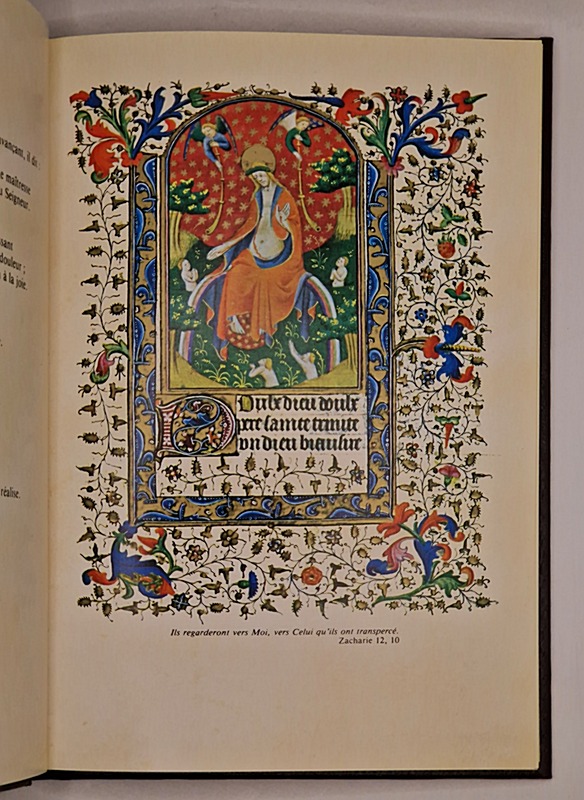 avançant, il dit :
maîtresse
Seigneur.
douleur ;
à la joie.
réalise.
Doulx dieu doulx
pere saincte trinite
vn dieu biausire
Ils regarderont vers Moi, vers Celui qu'ils ont transpercé.
Zacharie 12, 10